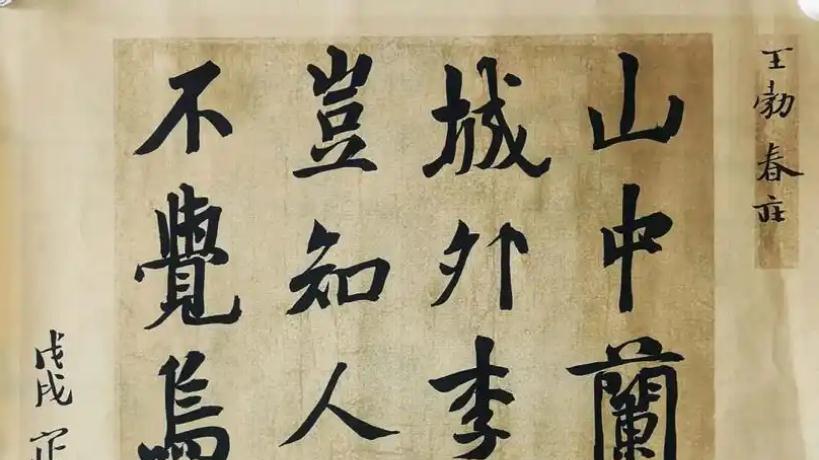 王勃春庄
山中蘭
城外李
豈知人
不覺鳥
戊戌